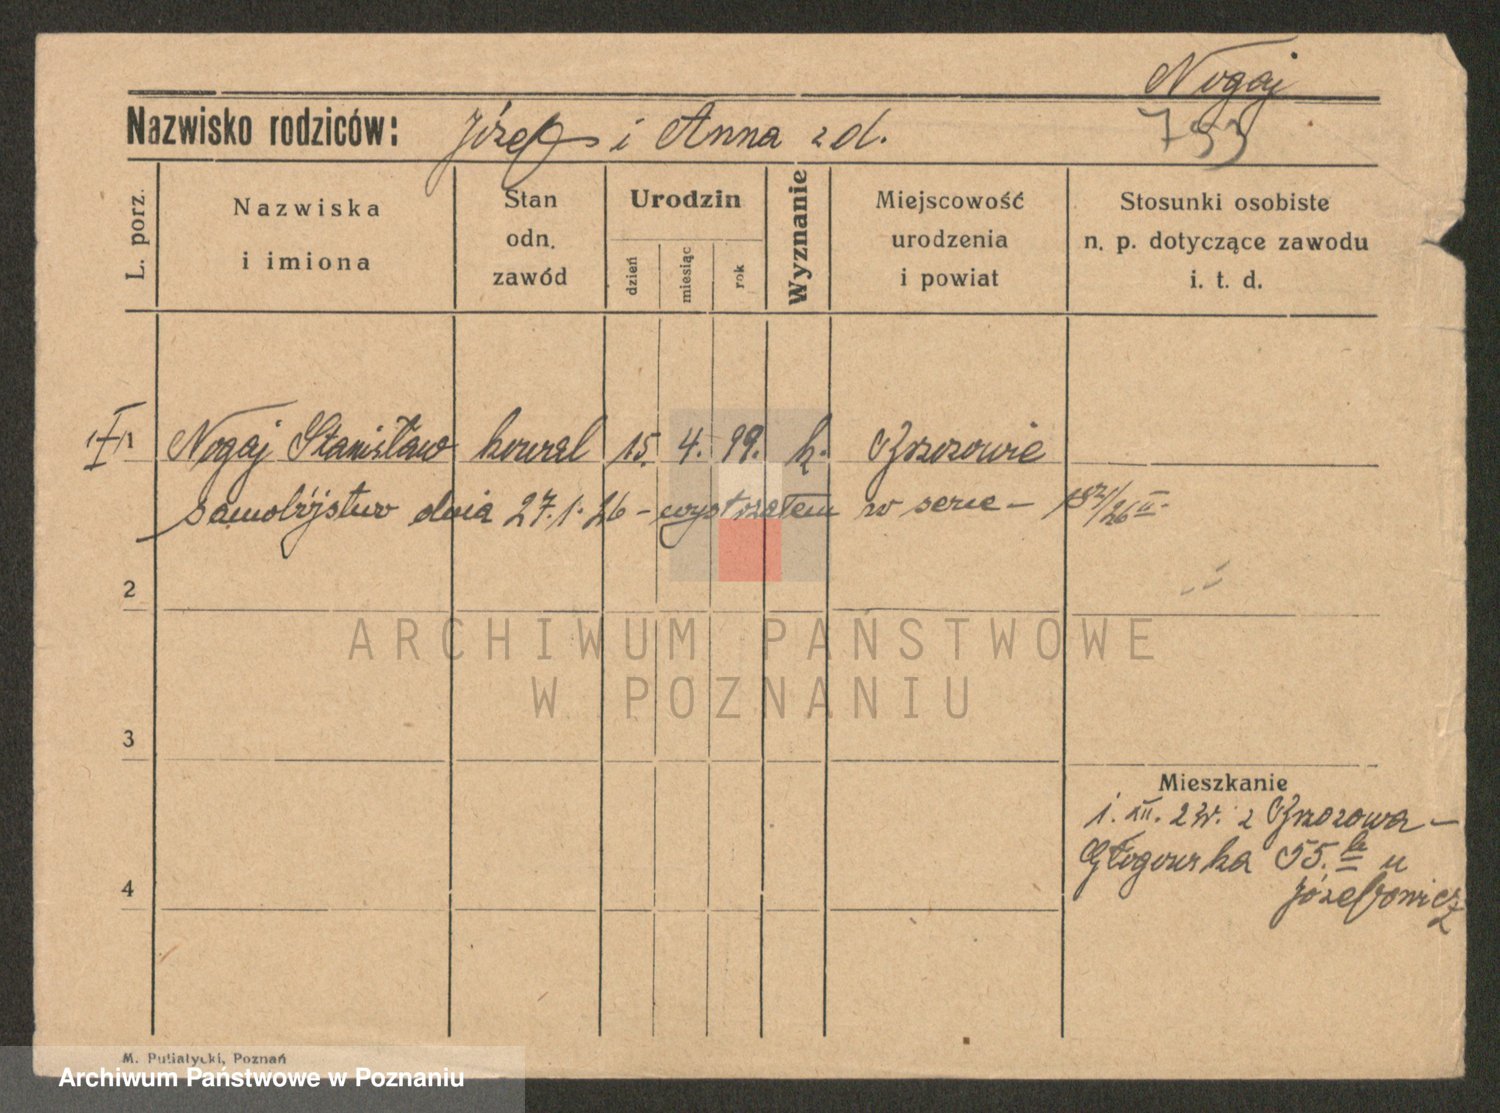 Nogaj
Nazwisko rodziców: Józef i Anna zd.
753
L. porz.
Nazwiska
i imiona
Stan
odn.
zawód
Urodzin
dzień
miesiąc
rok
Wyznanie
Miejscowość
urodzenia
i powiat
Stosunki osobiste
n. p. dotyczące zawodu
i. t. d.
1 Nogaj Stanisław kowal 15. 4. 99. k. Brzozowie
samobójstwo dnia 27.1.26 – wystrzałem w serce –
2
ARCHIWUM PAŃSTWOWE
W POZNANIU
3
Mieszkanie
1. XII. 24. z Brzozowa –
Głogowska 55. u
Józefowicz
4
M. Putiatycki, Poznań
Archiwum Państwowe w Poznaniu